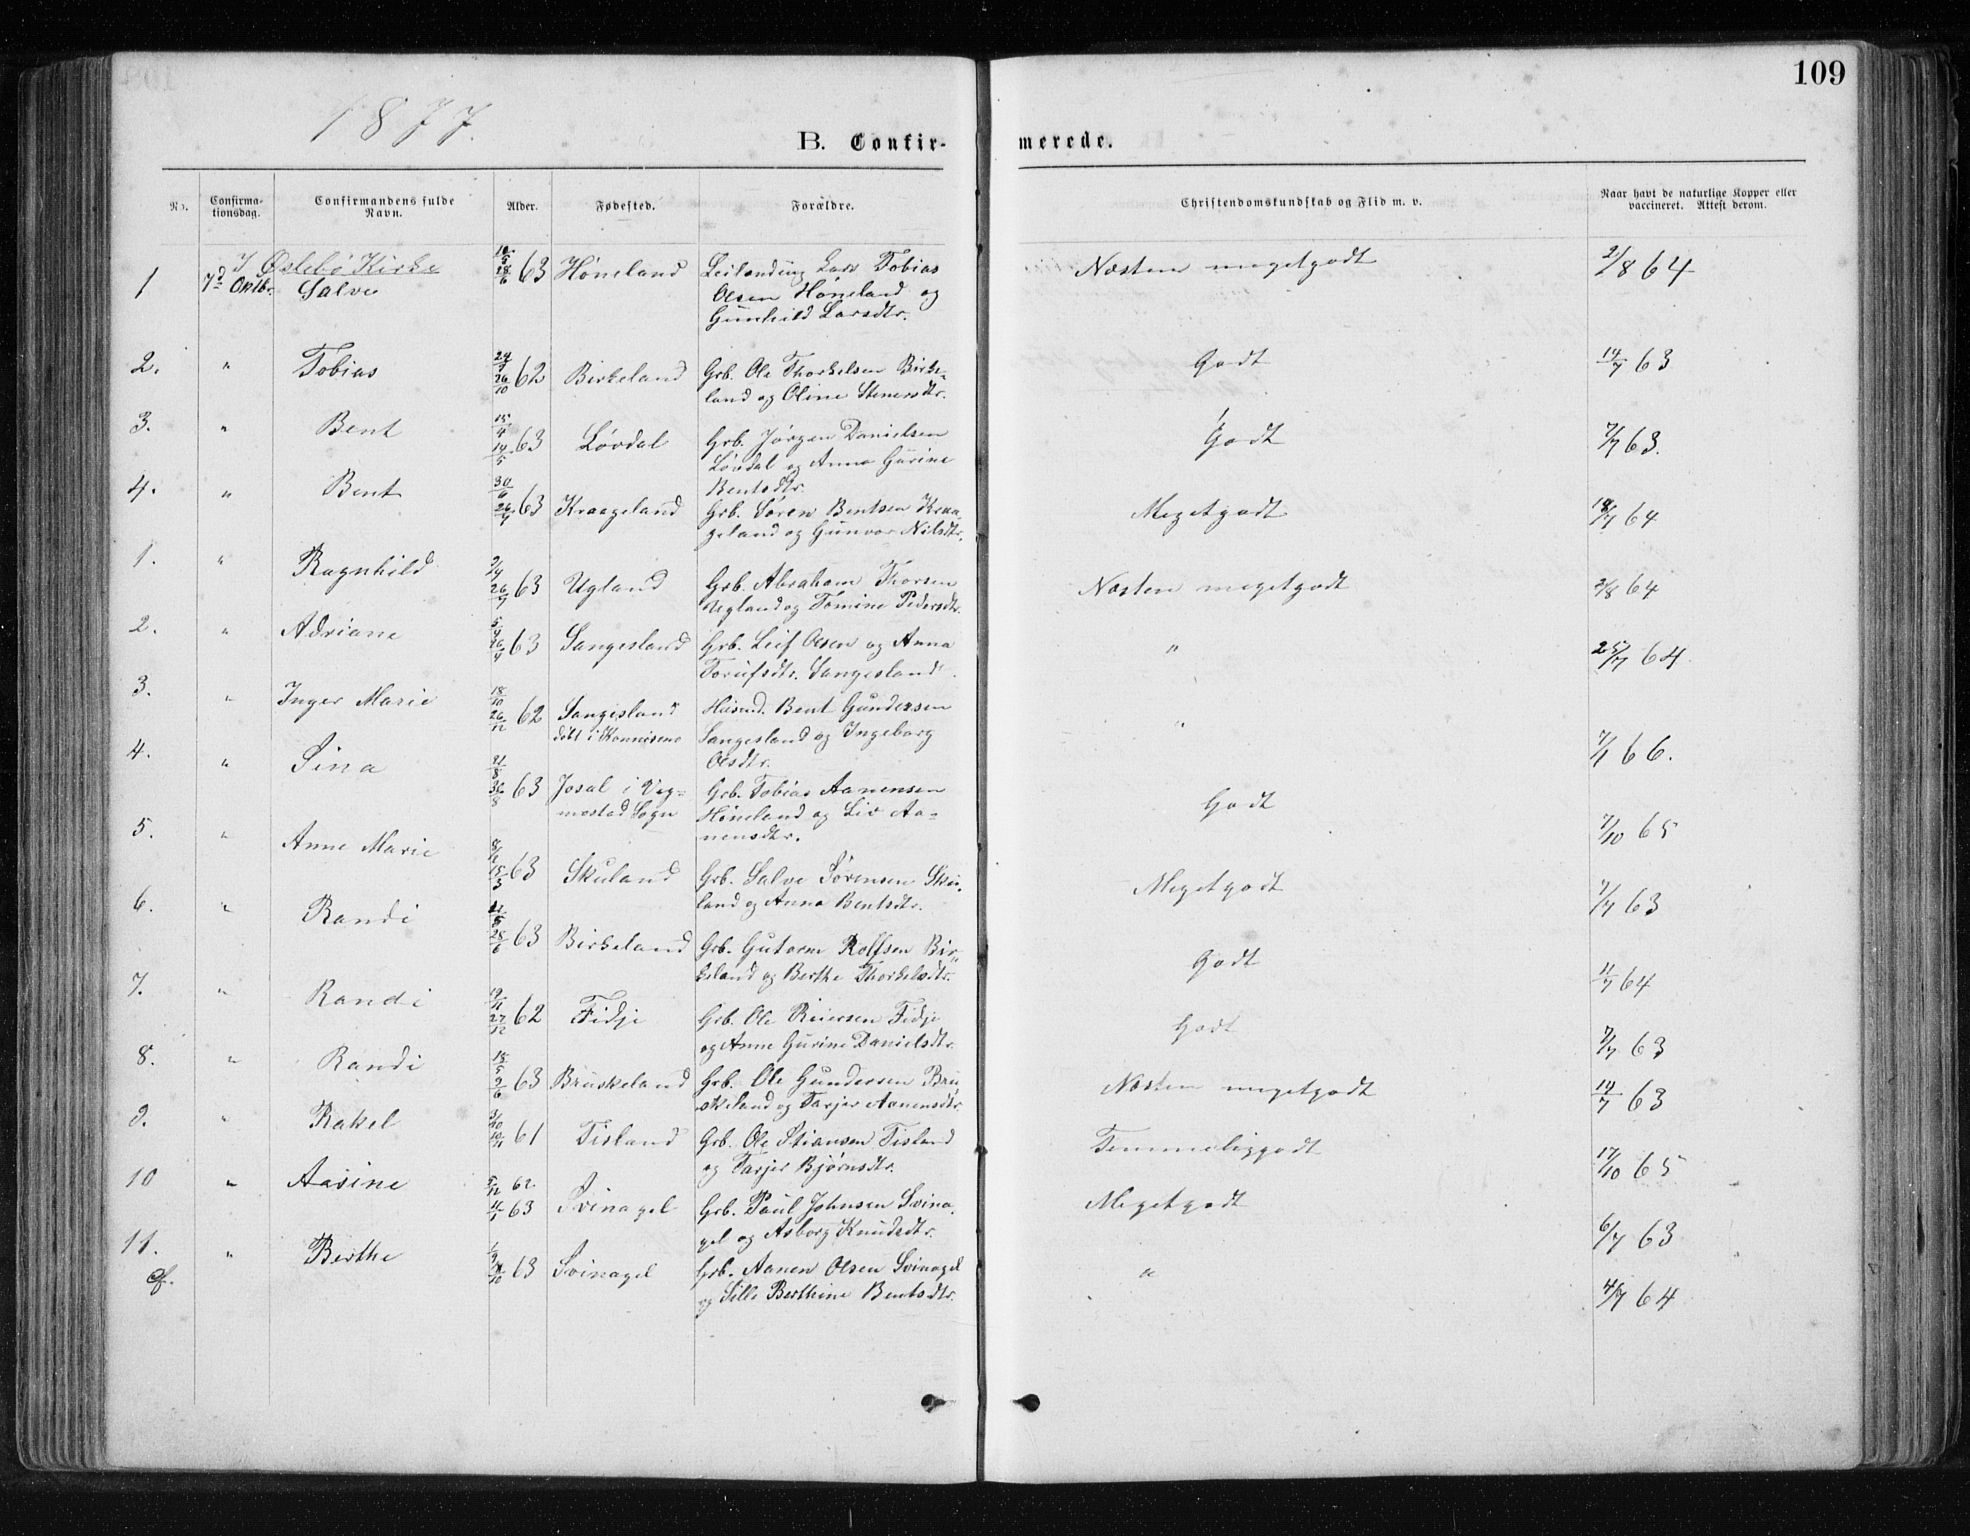 109
1877.
B. Confir-
merede.
No.
Confirma-
tionsdag.
Confirmandens fulde
Navn.
Alder.
Fødested.
Forældre.
Christendomskundskab og Flid m. v.
Naar havt de naturlige Kopper eller
vaccineret. Attest derom.
I Øslebø Kirke
1 7d Oktbr. Salve 28/6 63 Høneland Leilænding Lars Tobias Næsten megetgodt 2/8 64
Olsen Høneland og
Gunhild Larsdtr.
2. " Tobias 26/10 62 Birkeland Grb. Ole Thorkelsen Birke- Godt 14/7 63
land og Oline Stenersdtr.
3. " Bent 15/4 14/5 63 Løvdal Grb. Jørgen Danielsen Godt 7/7 63.
Løvdal og Anna Gurine
Bentsdtr.
4. " Bent 63 Kraageland Grb. Søren Bentsen Kraa- Megetgodt 18/7 64
geland og Gunvor Nilsdtr.
1. " Ragnhild 63 Ugland Grb. Abraham Thorsen Næsten megetgodt 2/8 64
Ugland og Tomine Pedersdtr.
2. " Adriane 63 Sangesland Grb. Leif Olsen og Anna " 25/7 64
Torufsdtr. Sangesland.
3. " Inger Marie 18/10 26/12 62 Sangesland Husmd. Bent Gundersen "
døbt i Sangesland og Ingeborg
Olsdtr. 66.
4. " Sina 63 Josal i Vig- Grb. Tobias Aanensen Godt 7/10 65
mostad Sogn Høneland og Liv Aa-
nensdtr.
5. " Anne Marie 15/3 63 Skuland Grb. Salve Sørensen Sku- Megetgodt 7/7 63
land og Anna Bentsdtr.
6. " Randi 28/6 63 Birkeland Grb. Gutorm Rolfsen Bir- Godt 64
keland og Berthe Thorkelsdtr.
7. " Randi 19/11 27/12 62 Fidje Grb. Ole Reiersen Fidje Godt 7/7 63
og Anne Gurine Danielsdtr.
8. " Randi 63 Bruskeland Grb. Ole Gundersen Bru- Næsten megetgodt 14/7 63
skeland og Tarjer Aanensdtr.
9. " Rakel 3/10 61 Tisland Grb. Ole Stiansen Tisland Temmeliggodt 17/10 65
og Tarjer Bjørnsdtr.
10 " Aasine 62 63 Svinagel Grb. Paul Johnsen Svina- Megetgodt 6/7 63
gel og Asborg Knudsdtr.
11. " Berthe 63 Svinagel Grb. Aanen Olsen Svinagel " 4/7 64
og Sille Berthine Bentsdtr.